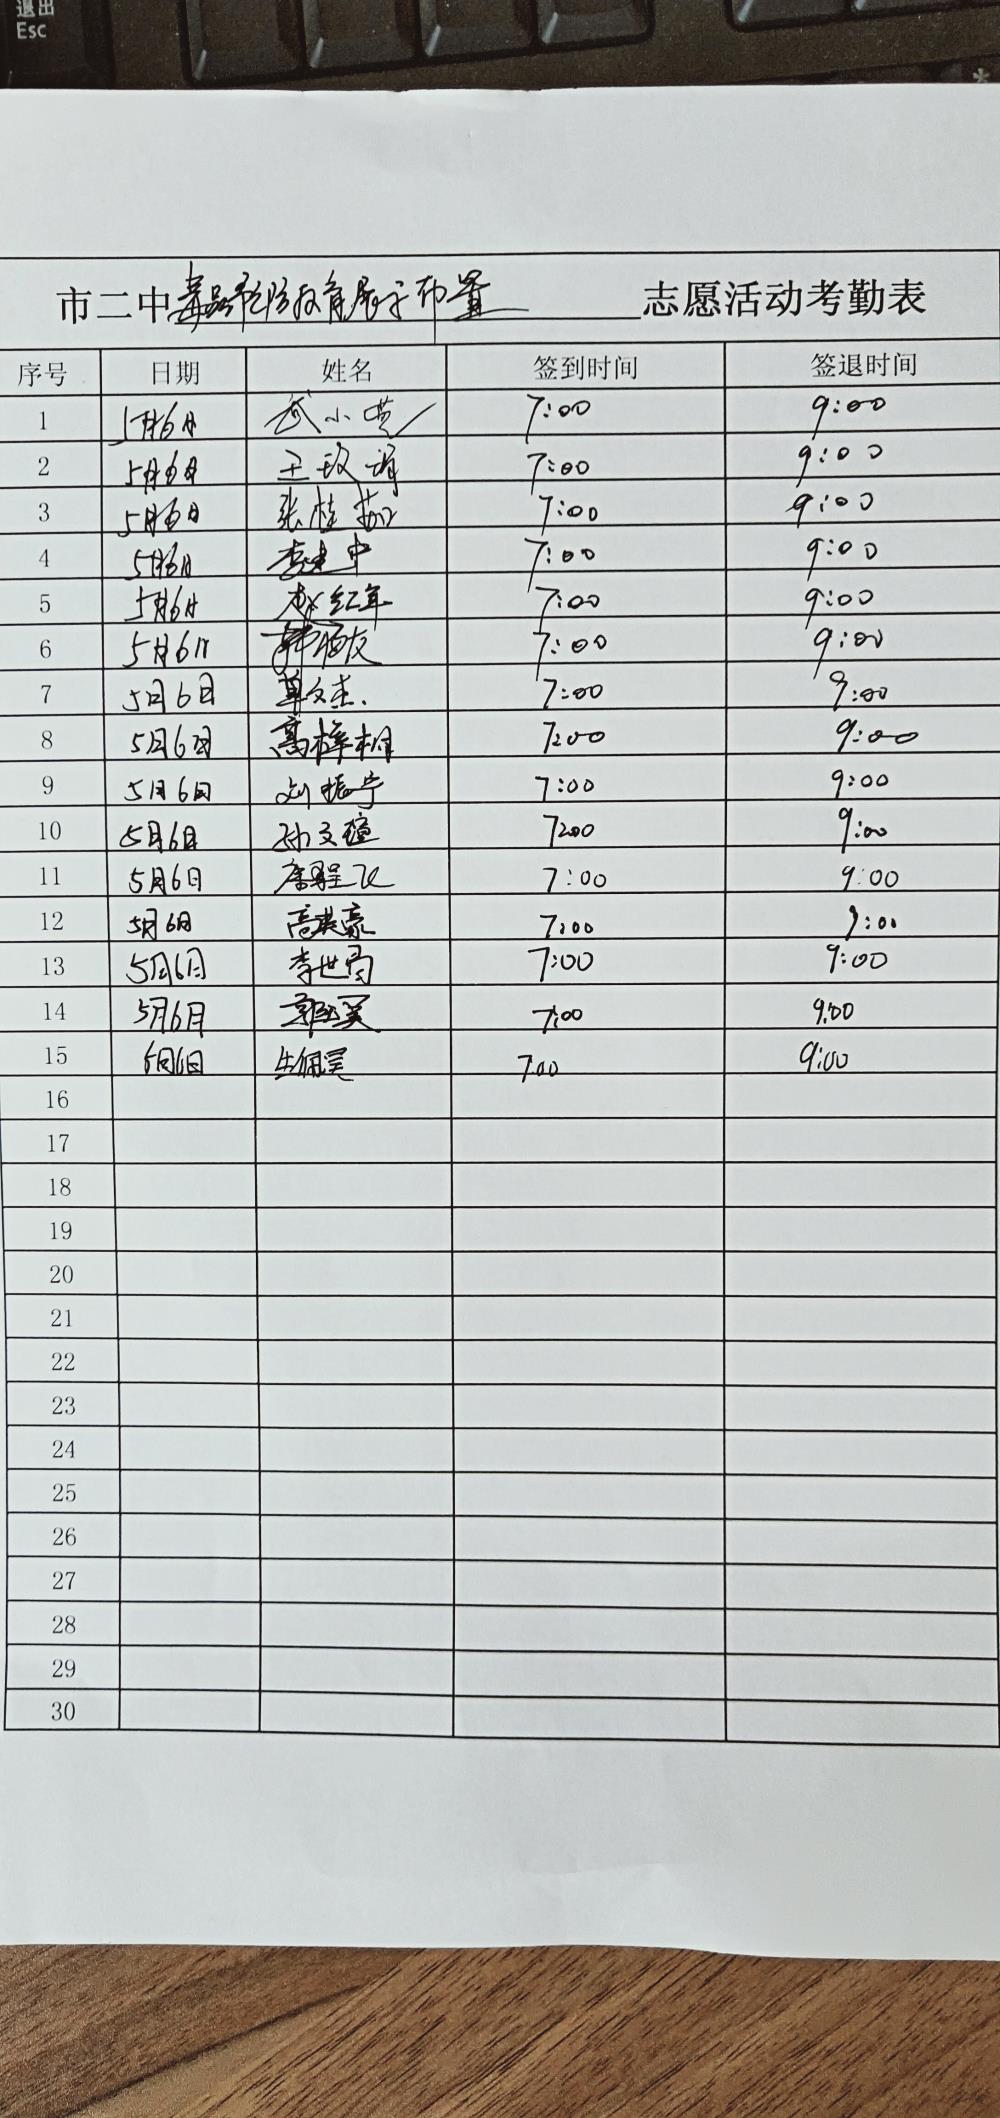 退出
Esc
市二中毒品预防教育展示布置志愿活动考勤表
序号 日期 姓名 签到时间 签退时间
1 5月6日 武小 7:00 9:00
2 5月6日 王玫娟 7:00 9:00
3 5月6日 张桂茹 7:00 9:00
4 5月6日 李建中 7:00 9:00
5 5月6日 赵红军 7:00 9:00
6 5月6日 韩丽友 7:00 9:00
7 5月6日 单文杰 7:00 9:00
8 5月6日 高梓桐 7:00 9:00
9 5月6日 刘振宇 7:00 9:00
10 5月6日 孙文瑄 7:00 9:00
11 5月6日 唐程飞 7:00 9:00
12 5月6日 高洪豪 7:00 9:00
13 5月6日 李世 7:00 9:00
14 5月6日 郭昊 7:00 9:00
15 5月6日 生佩昊 7:00 9:00
16
17
18
19
20
21
22
23
24
25
26
27
28
29
30